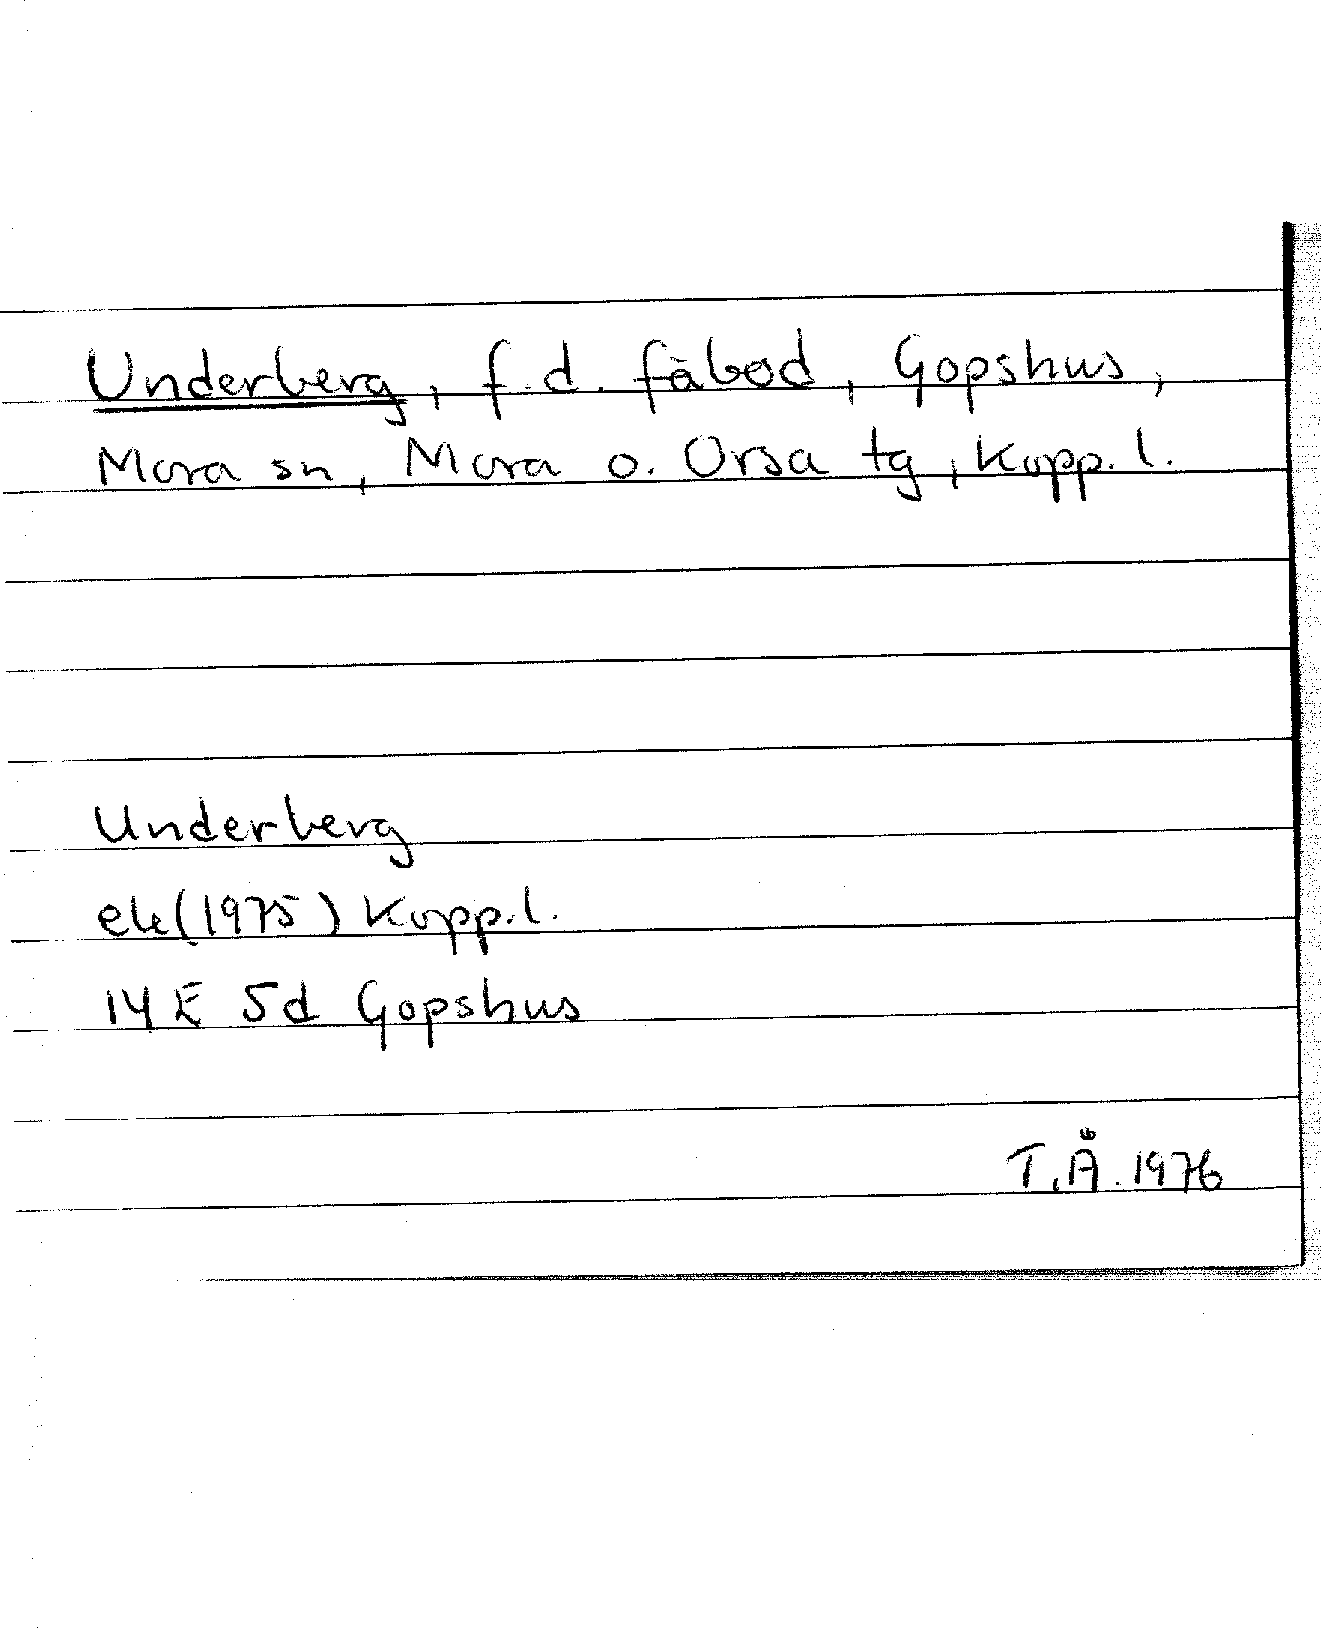 Underberg, f.d. fäbod, Gopshus,
Mora sn, Mora o. Orsa tg, Kopp. l.
Underberg
ek(1975) Kopp.l.
14 E 5d Gopshus
T.Å. 1976